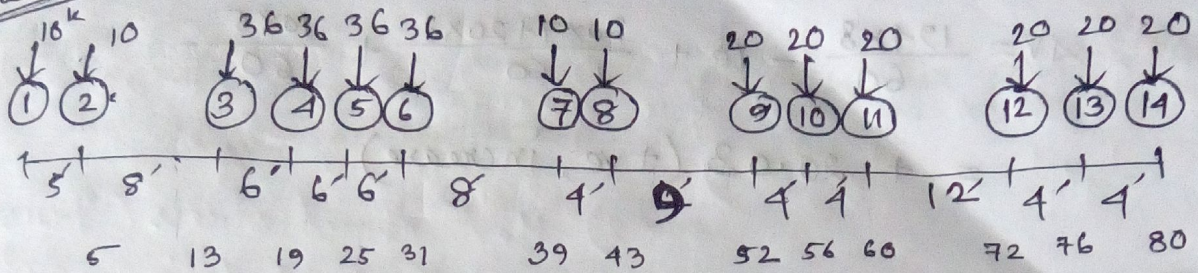 10k 10 36 36 36 36 10 10 20 20 20 20 20 20
1 2 3 4 5 6 7 8 9 10 11 12 13 14
5' 8' 6' 6' 6' 8' 4' 9' 4' 4' 12' 4' 4'
5 13 19 25 31 39 43 52 56 60 72 76 80